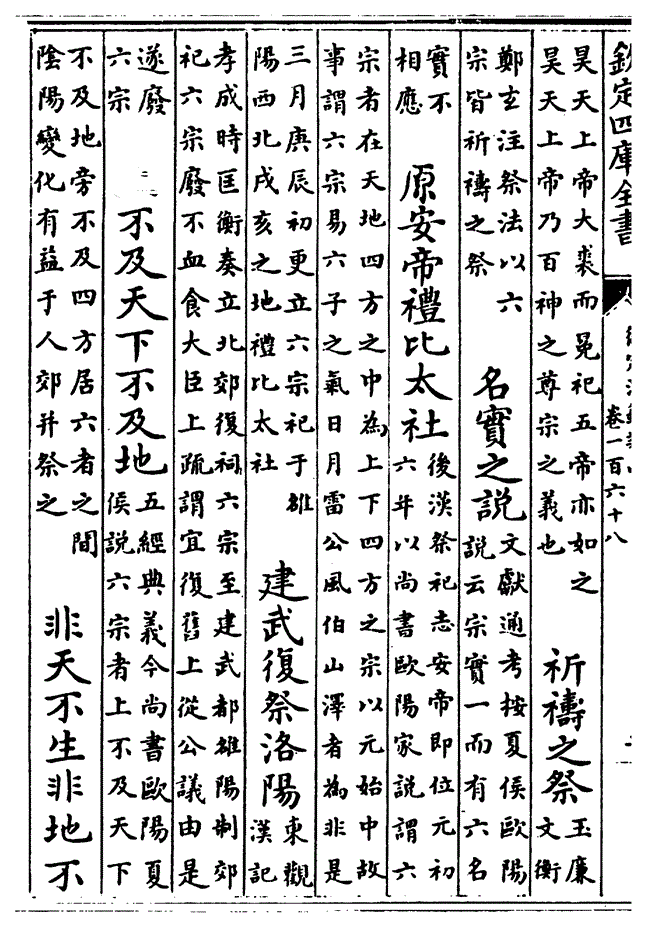 欽定四庫全書
卷一百六十八
昊天上帝大裘而冕祀五帝亦如之
昊天上帝乃百神之尊宗之義也
祈禱之祭
玉廉
文衡
鄭玄注祭法以六
宗皆祈禱之祭
名實之説
文獻通考桉夏侯歐陽
説云宗實一而有六名
實不
相應
原安帝禮比太社
後漢祭祀志安帝即位元初
六年以尚書歐陽家説謂六
宗者在天地四方之中為上下四方之宗以元始中故
事謂六宗易六子之氣日月雷公風伯山澤者為非是
三月庚辰初更立六宗祀于雒
陽西北戌亥之地禮比太社
建武復祭洛陽
東觀
漢記
孝成時匡衡奏立北郊復祠六宗至建武都雒陽制郊
祀六宗廢不血食大臣上疏謂宜復舊上從公議由是
遂廢
六宗
不及天下不及地
五經典義今尚書歐陽夏
侯説六宗者上不及天下
不及地旁不及四方居六者之間
陰陽變化有益于人郊并祭之
非天不生非地不